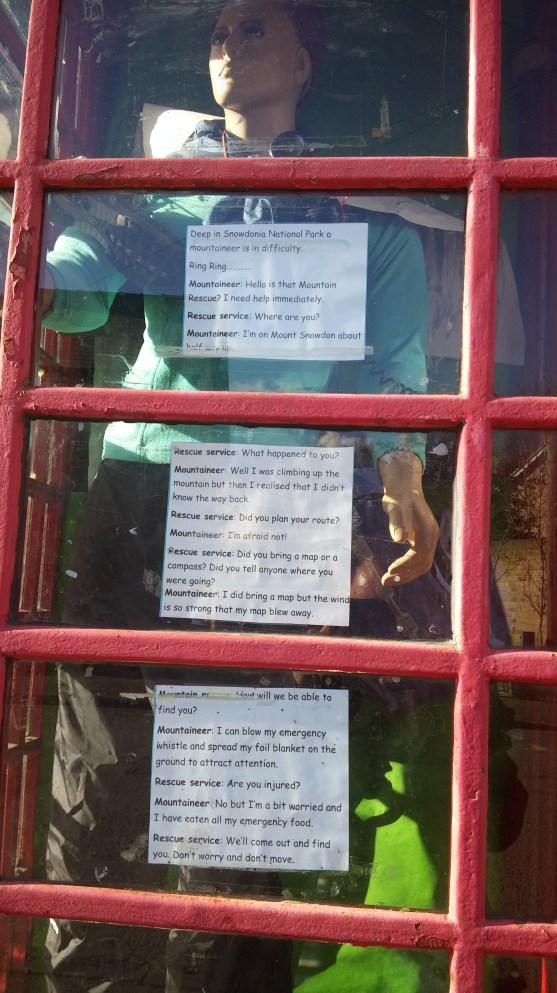 Deep in Snowdonia National Park a
mountaineer is in difficulty.
Ring Ring..........
Mountaineer: Hello is that Mountain
Rescue? I need help immediately.
Rescue service: Where are you?
Mountaineer: I'm on Mount Snowdon about
half way up.
Rescue service: What happened to you?
Mountaineer: Well I was climbing up the
mountain but then I realised that I didn't
know the way back.
Rescue service: Did you plan your route?
Mountaineer: I'm afraid not!
Rescue service: Did you bring a map or a
compass? Did you tell anyone where you
were going?
Mountaineer: I did bring a map but the wind
is so strong that my map blew away.
Mountain How will we be able to
find you?
Mountaineer: I can blow my emergency
whistle and spread my foil blanket on the
ground to attract attention.
Rescue service: Are you injured?
Mountaineer: No but I'm a bit worried and
I have eaten all my emergency food.
Rescue service: We'll come out and find
you. Don't worry and don't move.